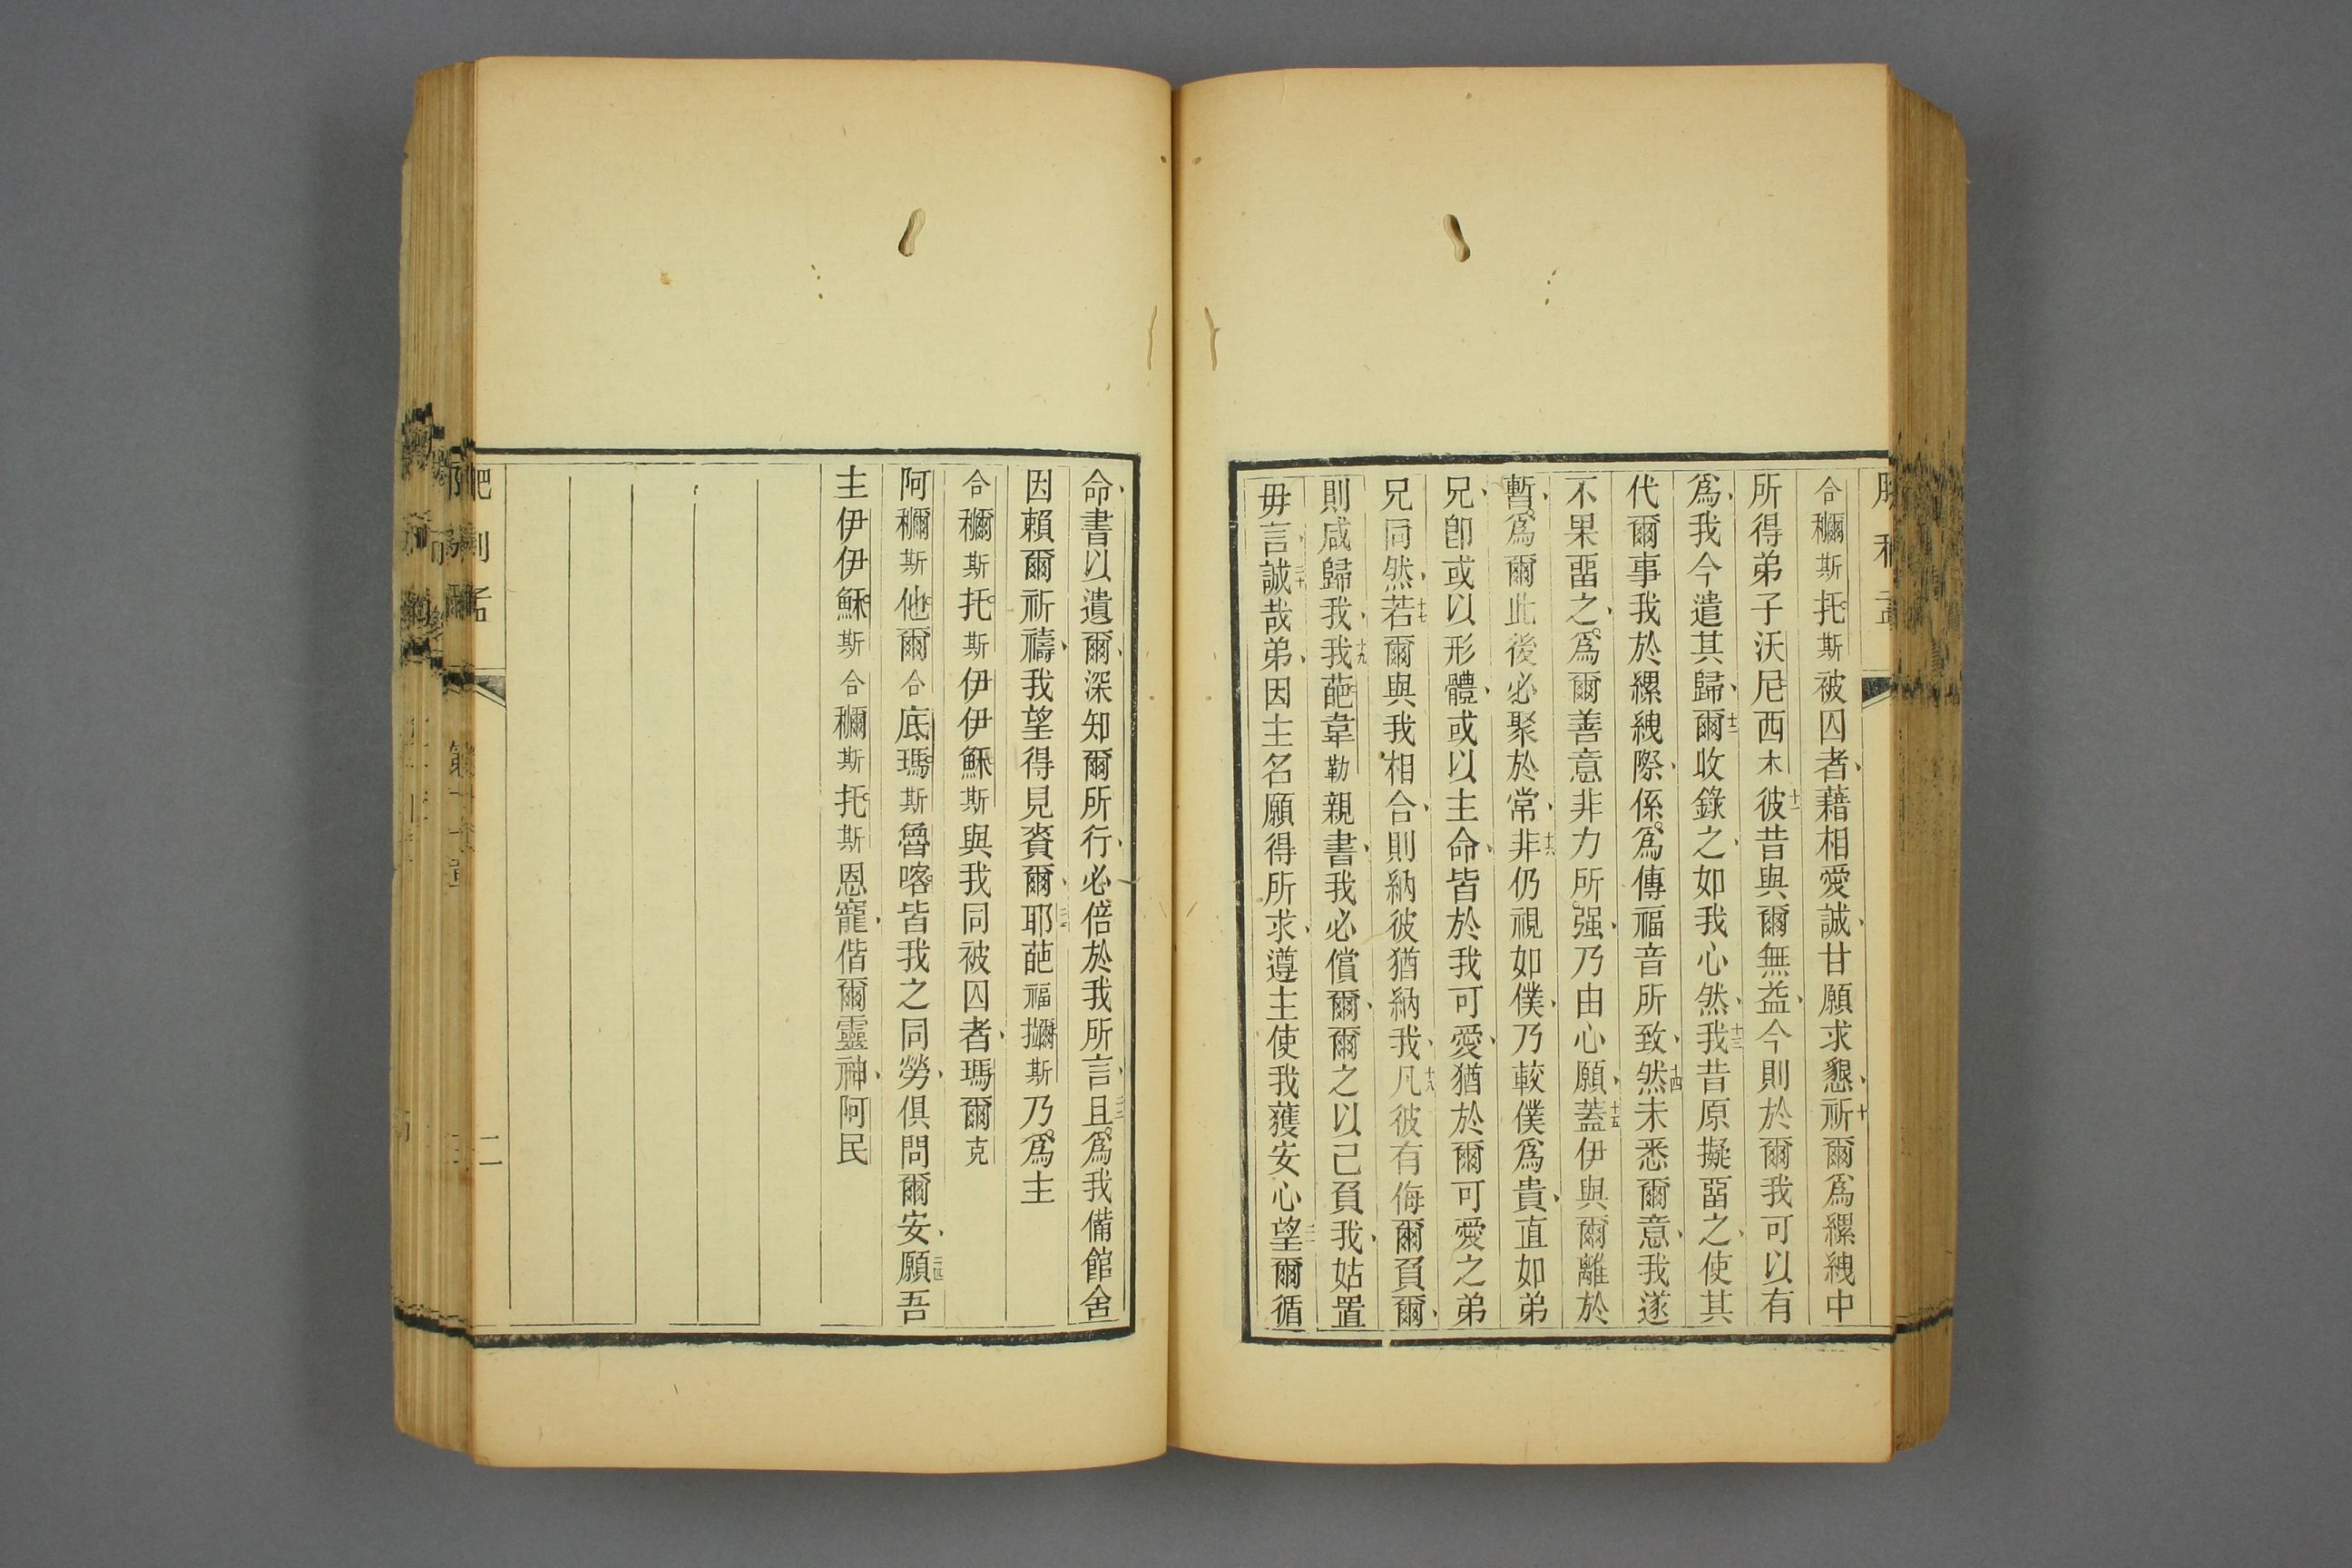 合穪斯托斯被囚者、藉相愛誠、甘願求懇、十祈爾爲縲絏中
所得弟子沃尼西木十一彼昔與爾無益、今則於爾我可以有
爲、我今遣其歸、十二爾收錄之、如我心然、十三我昔原擬畱之、使其
代爾事我於縲絏際、係爲傳福音所致、十四然未悉爾意、我遂
不果畱之、爲爾善意非力所强、乃由心願、十五蓋伊與爾離於
暫、爲爾此後必聚於常、十六非仍視如僕、乃較僕爲貴、直如弟
兄、卽或以形體、或以主命、皆於我可愛、猶於爾可愛之弟
兄同然、十七若爾與我相合、則納彼猶納我、十八凡彼有侮爾負爾、
則咸歸我、十九我葩韋勒親書、我必償爾、爾之以己負我、姑置
毋言、二十誠哉弟、因主名願得所求、遵主使我獲安心、二一望爾循
命、書以遺爾、深知爾所行、必倍於我所言、二二且爲我備館舍
因賴爾祈禱、我望得見賚爾、二三耶葩福攡斯乃爲主
合穪斯托斯伊伊穌斯與我同被囚者、瑪爾克
阿穪斯他爾合底瑪斯魯喀皆我之同勞、俱問爾安、二四願吾
主伊伊穌斯合穪斯托斯恩寵、偕爾靈神、阿民
肥利孟
二